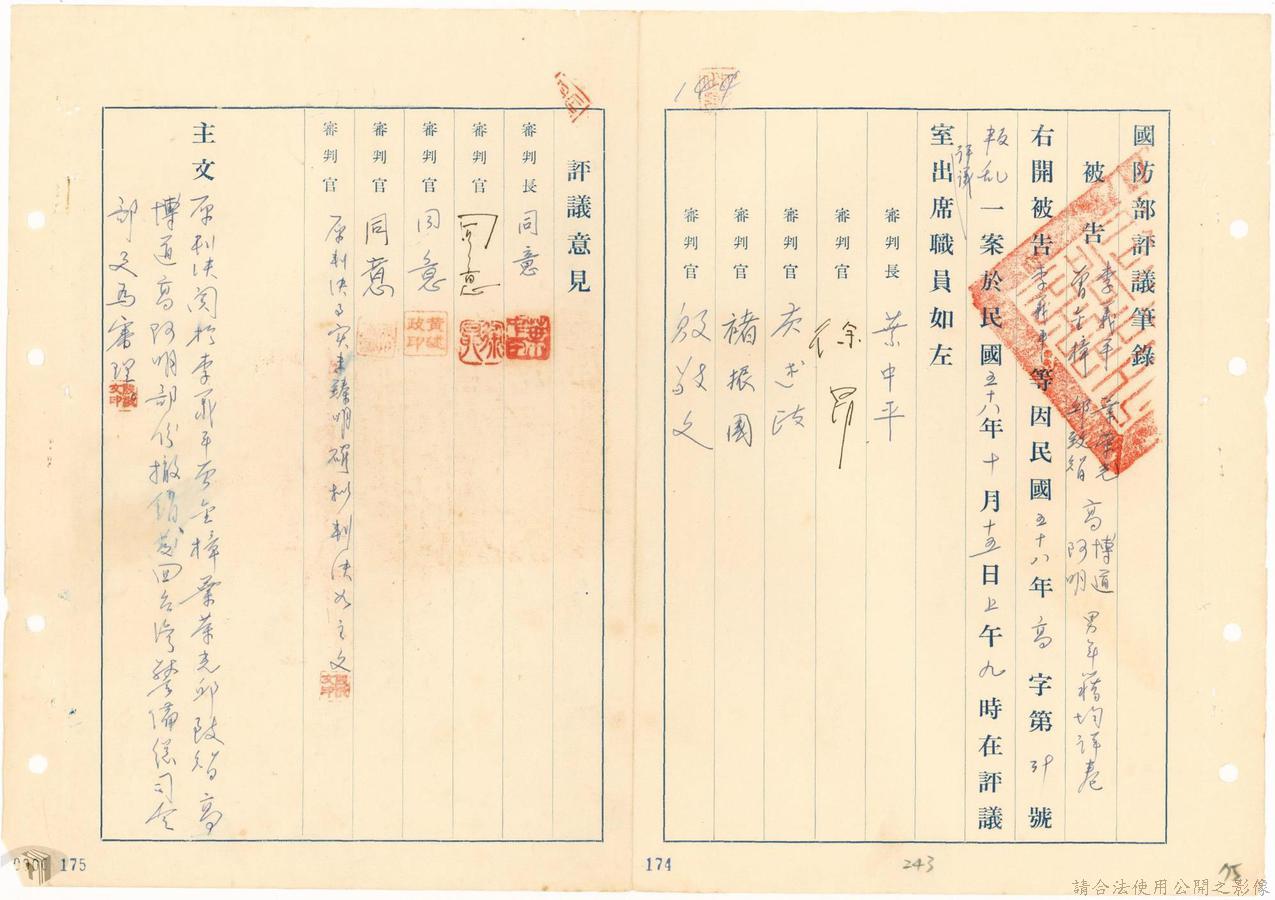 國防部評議筆錄
被告 李義平 曾金樟 葉榮光 邱致智 高博道 高阿明 男年籍均詳卷
右開被告李義平等因民國五十八年高字第 號
叛乱一案於民國五十八年十月十五日上午九時在評議
評議
室出席職員如左
審判長 葉中平
審判官 徐昂
審判官 黃述政
審判官 褚振國
審判官 殷敬文
評議意見
審判長 同意
審判官 同意
審判官 同意
審判官 同意
審判官 原判決事實未臻明確擬判決如主文
主文 原判決関於李義平曾金樟葉荣光邱致智高
博道高阿明部份撤銷發回台湾警備總司令
部更為審理
黃述政印
174
175
243
75
請合法使用公開之影像